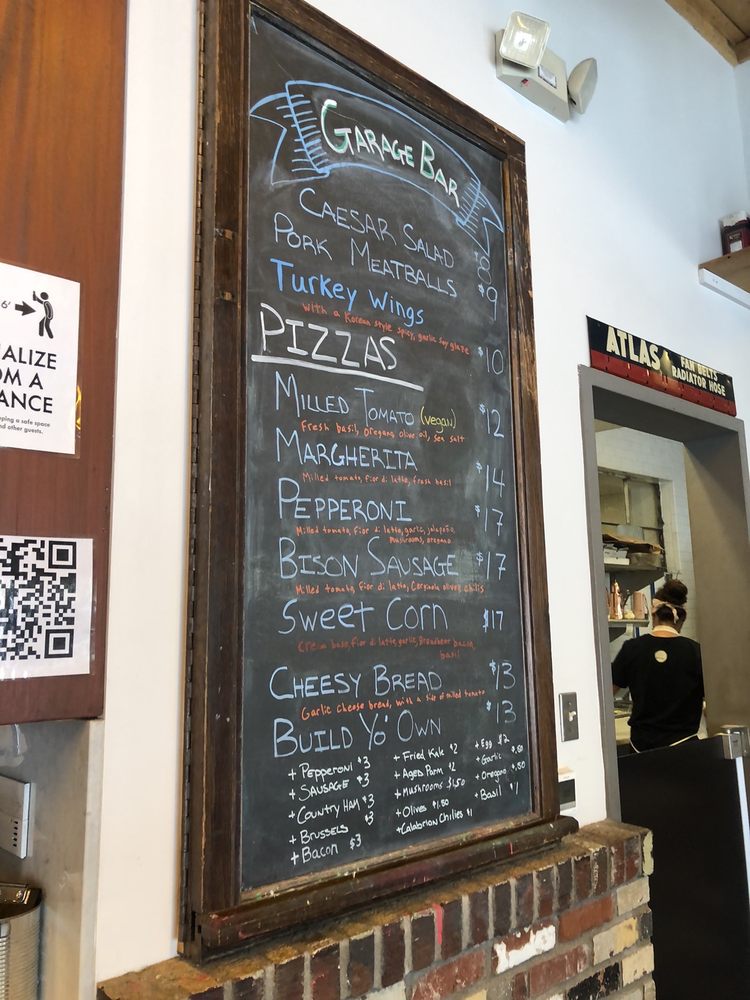 GARAGE BAR
CAESAR SALAD $8
PORK MEATBALLS $9
Turkey Wings $10
with a Korean style spicy, garlic soy glaze
PIZZAS
MILLED TOMATO (vegan) $12
Fresh basil, oregano, olive oil, sea salt
MARGHERITA $14
Milled tomato, fior di latte, fresh basil
PEPPERONI $17
Milled tomato, fior di latte, garlic, jalapeño,
mushrooms, oregano
BISON SAUSAGE $17
Milled tomato, fior di latte, Cerignola olives, chilis
Sweet Corn $17
Cream base, fior di latte, garlic, Broadbent bacon,
basil
CHEESY BREAD $13
Garlic cheese bread, with a side of milled tomato
BUILD YO' OWN $13
+ Pepperoni $3
+ SAUSAGE $3
+ COUNTRY HAM $3
+ BRUSSELS $3
+ Bacon $3
+ Fried Kale $2
+ Aged Parm $2
+ Mushrooms $1.50
+ Olives $1.50
+ Calabrian Chilies $1
+ Egg $2
+ Garlic .50
+ Oregano .50
+ Basil $1
6'
IALIZE
OM A
ANCE
ping a safe space
nd other guests.
ATLAS
FAN BELTS
RADIATOR HOSE